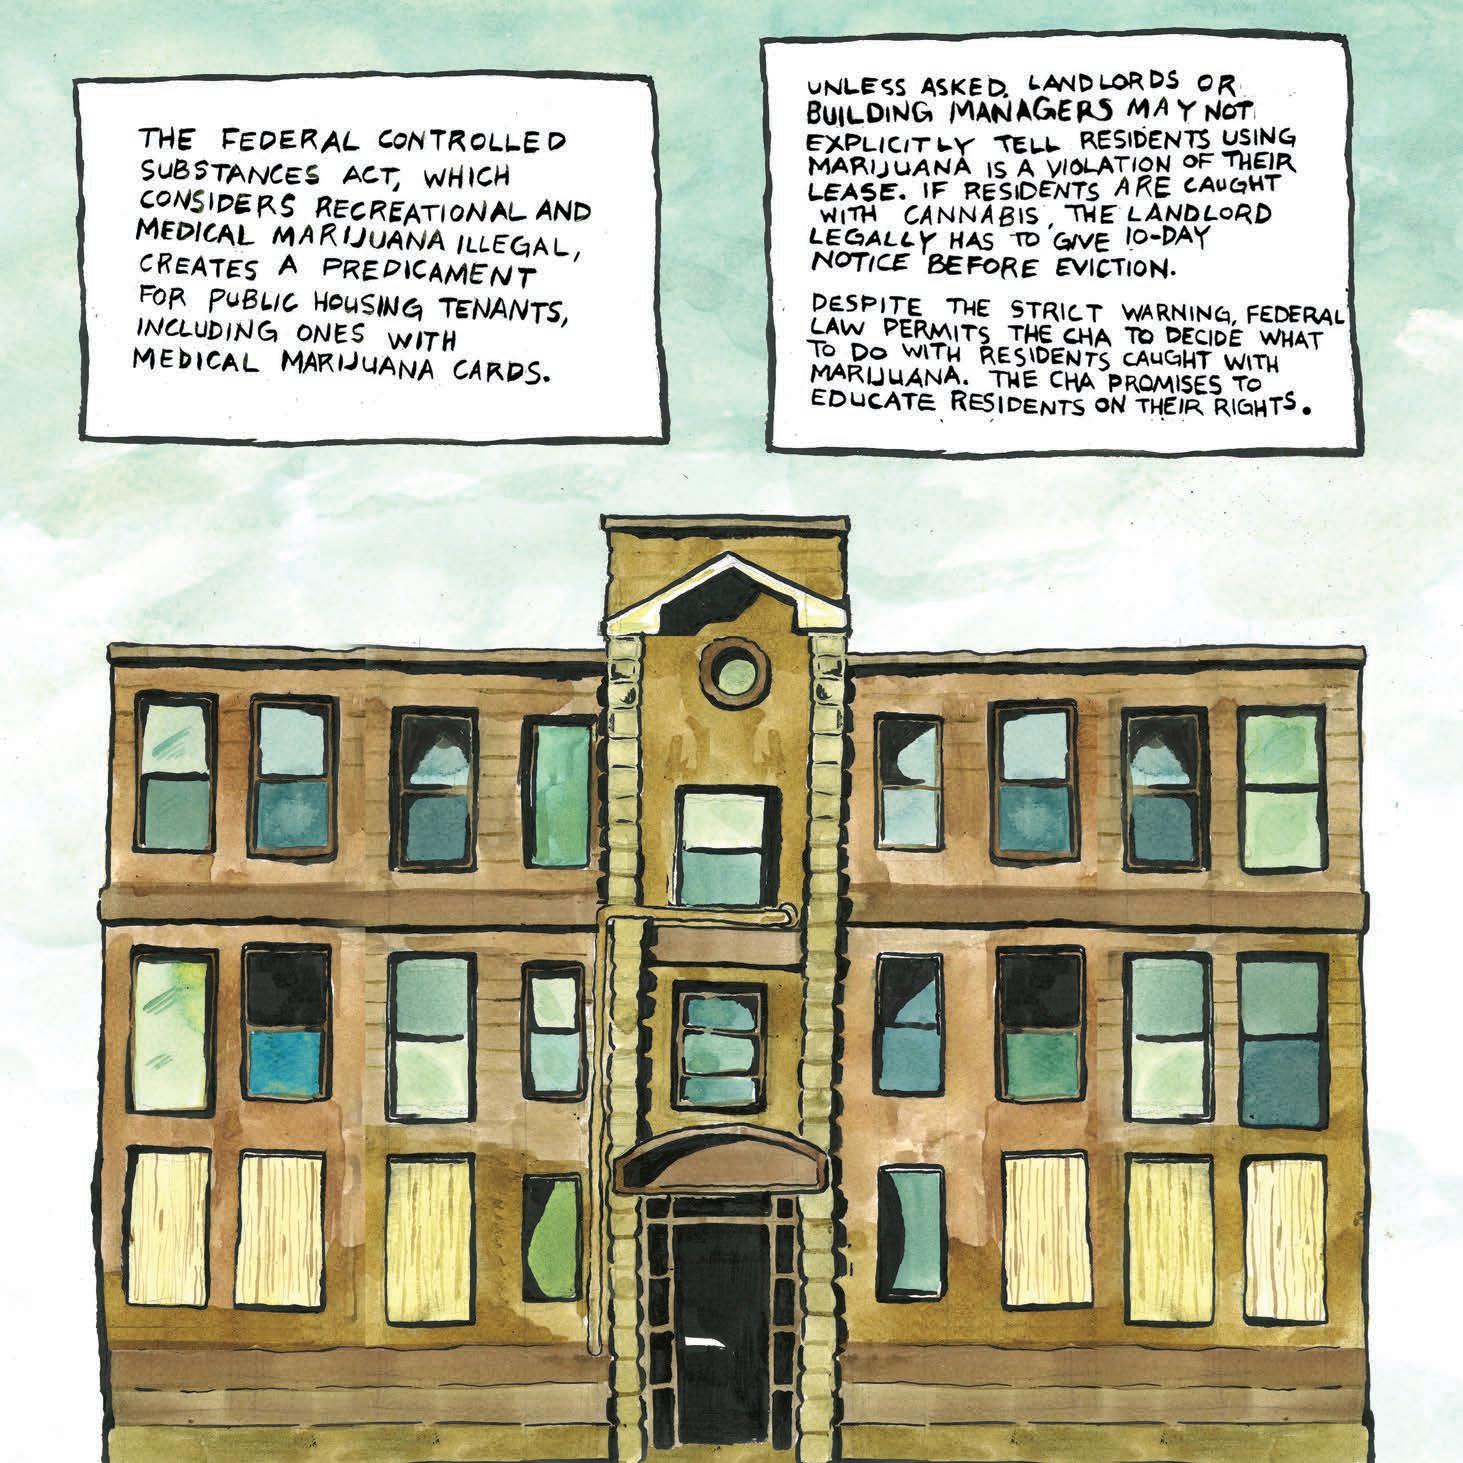 THE FEDERAL CONTROLLED
SUBSTANCES ACT, WHICH
CONSIDERS RECREATIONAL AND
MEDICAL MARIJUANA ILLEGAL,
CREATES A PREDICAMENT
FOR PUBLIC HOUSING TENANTS,
INCLUDING ONES WITH
MEDICAL MARIJUANA CARDS.
UNLESS ASKED, LANDLORDS OR
BUILDING MANAGERS MAY NOT
EXPLICITLY TELL RESIDENTS USING
MARIJUANA IS A VIOLATION OF THEIR
LEASE. IF RESIDENTS ARE CAUGHT
WITH CANNABIS, THE LANDLORD
LEGALLY HAS TO GIVE 10-DAY
NOTICE BEFORE EVICTION.
DESPITE THE STRICT WARNING, FEDERAL
LAW PERMITS THE CHA TO DECIDE WHAT
TO DO WITH RESIDENTS CAUGHT WITH
MARIJUANA. THE CHA PROMISES TO
EDUCATE RESIDENTS ON THEIR RIGHTS.